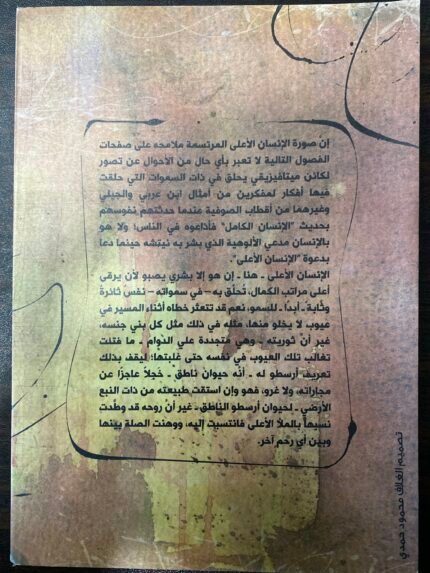 إن صورة الإنسان الأعلى المرتسمة ملامحه على صفحات
الفصول التالية لا تعبر بأي حال من الأحوال عن تصور
لكائن ميتافيزيقي يحلق في ذات السموات التي حلقت
فيها أفكار لمفكرين من أمثال ابن عربي والجيلي
وغيرهما من أقطاب الصوفية عندما حدثتهم نفوسهم
بحديث "الإنسان الكامل" فأذاعوه في الناس؛ ولا هو
بالإنسان مدعي الألوهية الذي بشر به نيتشه حينما دعا
بدعوة "الإنسان الأعلى".
الإنسان الأعلى ـ هنا ـ إن هو إلا بشري يصبو لأن يرقى
أعلى مراتب الكمال، تُحلّق به – في سمواته – نفس ثائرةٌ
وثابةٌ ـ أبداً ـ للسمو، نعم قد تتعثر خطاه أثناء المسير في
عيوب لا يخلو منها، مثله في ذلك مثل كل بني جنسه،
غير أنّ ثوريته ـ وهي متجددة علي الدّوام ـ ما فتئت
تغالب تلك العيوب في نفسه حتى غلبتها؛ ليقف بذلك
تعريف أرسطو له ـ أنّه حيوان ناطق ـ خجلاً عاجزًا عن
مجاراته، ولا غرو، فهو وإن استقت طبيعته من ذات النبع
الأرضي ـ لحيوان أرسطو الناطق ـ غير أن روحه قد وطدت
نسبها بالملأ الأعلى فانتسبت إليه، ووهنت الصلة بينها
وبين أي رحم آخر.
تصميم الغلاف محمود حمدي